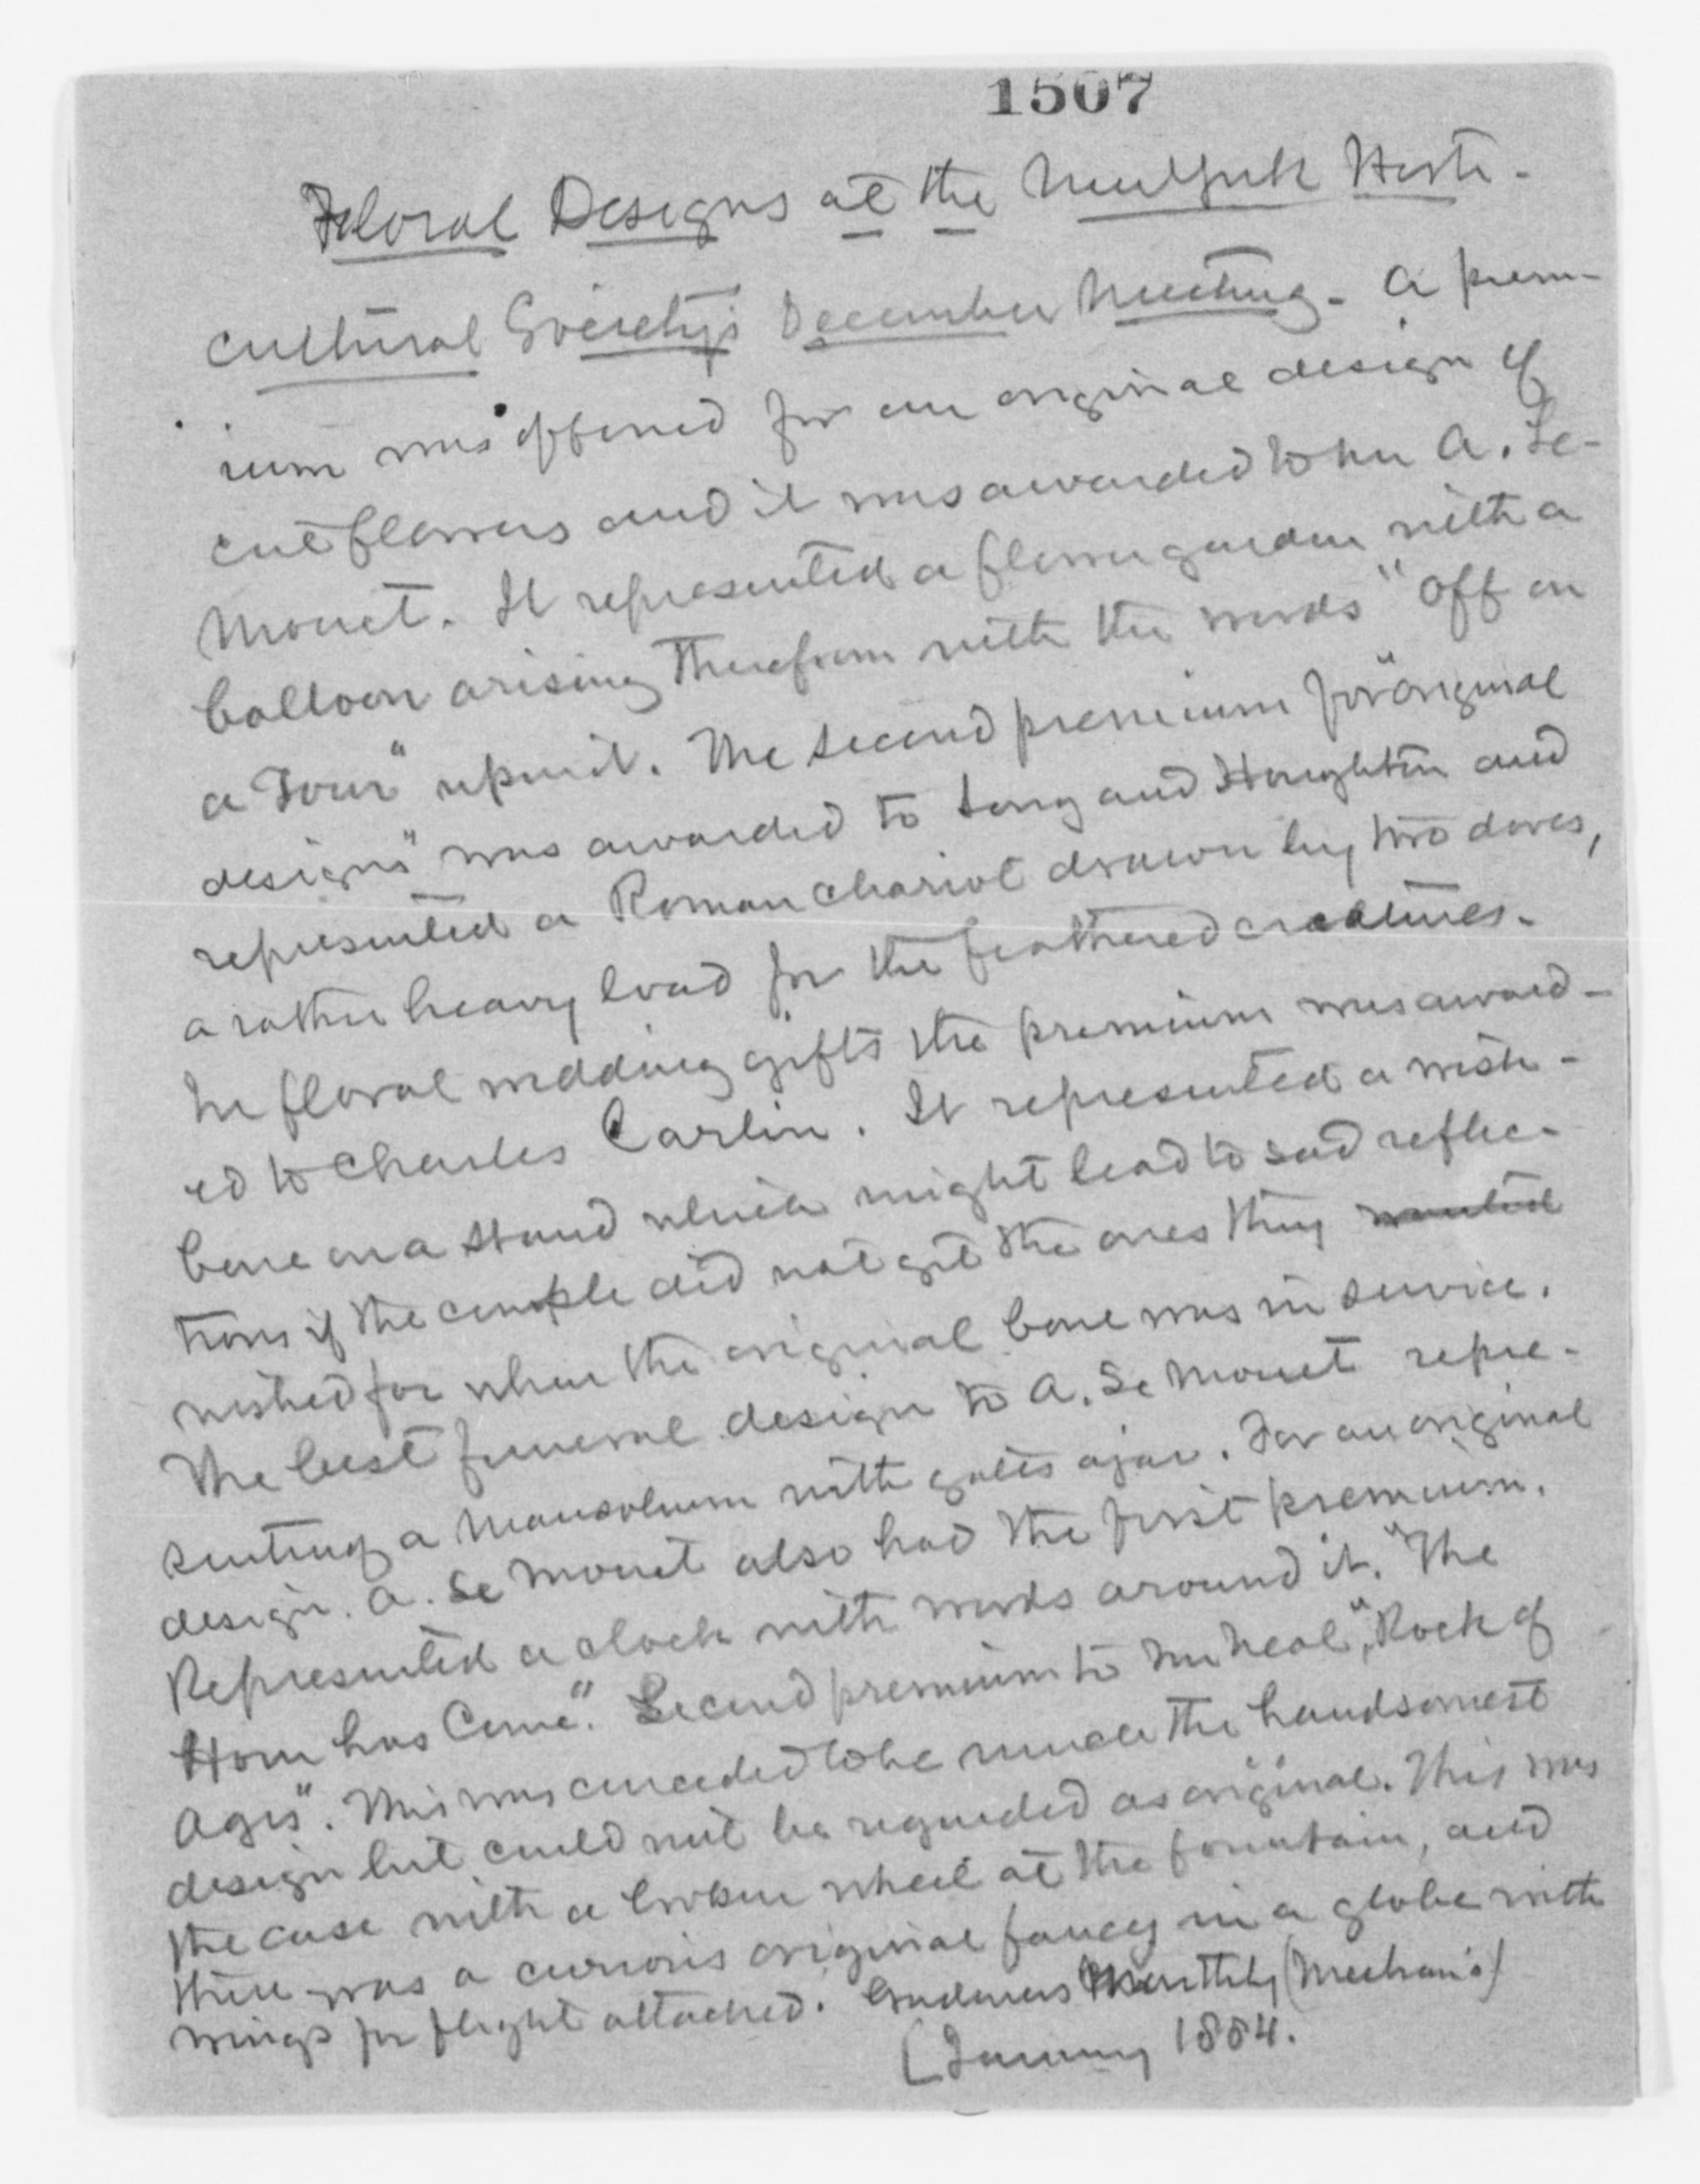 1507
Floral Designs at the New York Horti-
cultural Society's December Meeting - A prem-
ium was offered for an original design of
cut flowers and it was awarded to Mr A. Le-
Mouet. It represented a flower garden with a
balloon arising therefrom with the words "Off on
a Tour" upon it. The second premium for "original
designs" was awarded to Long and Houghton and
represented a Roman chariot drawn by two doves,
a rather heavy load for the feathered creatures.
In floral wedding gifts the premium was award-
ed to Charles Carlin. It represented a wish-
bone on a stand which might lead to sad reflec-
tions if the couple did not get the ones they wanted
wished for when the original bone was in service.
The best funeral design to A. Le Mouet repre-
senting a Mausoleum with gates ajar. For an original
design. A. Le Mouet also had the first premium.
Represented a clock with words around it. "The
Hour has Come". Second premium to Mr Neal, "Rock of
Ages". This was conceded to be much the handsomest
design but could not be regarded as "original". This was
the case with a broken wheel at the fountain, and
there was a curious original fancy in a globe with
wings for flight attached. Gardeners Monthly (Meehan's)
(January 1884.